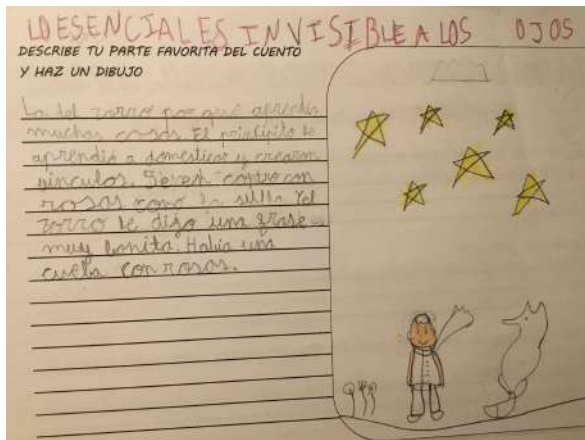 LO ESENCIAL ES INVISIBLE A LOS OJOS
DESCRIBE TU PARTE FAVORITA DEL CUENTO
Y HAZ UN DIBUJO
La del zorro por que aprendia
muchas cosas. El principito le
aprendió a domesticar y crearon
vinculos. con
rosas como la sulla Yel
zorro le dijo una frase
muy bonita. Habia una
cueba con rosas.